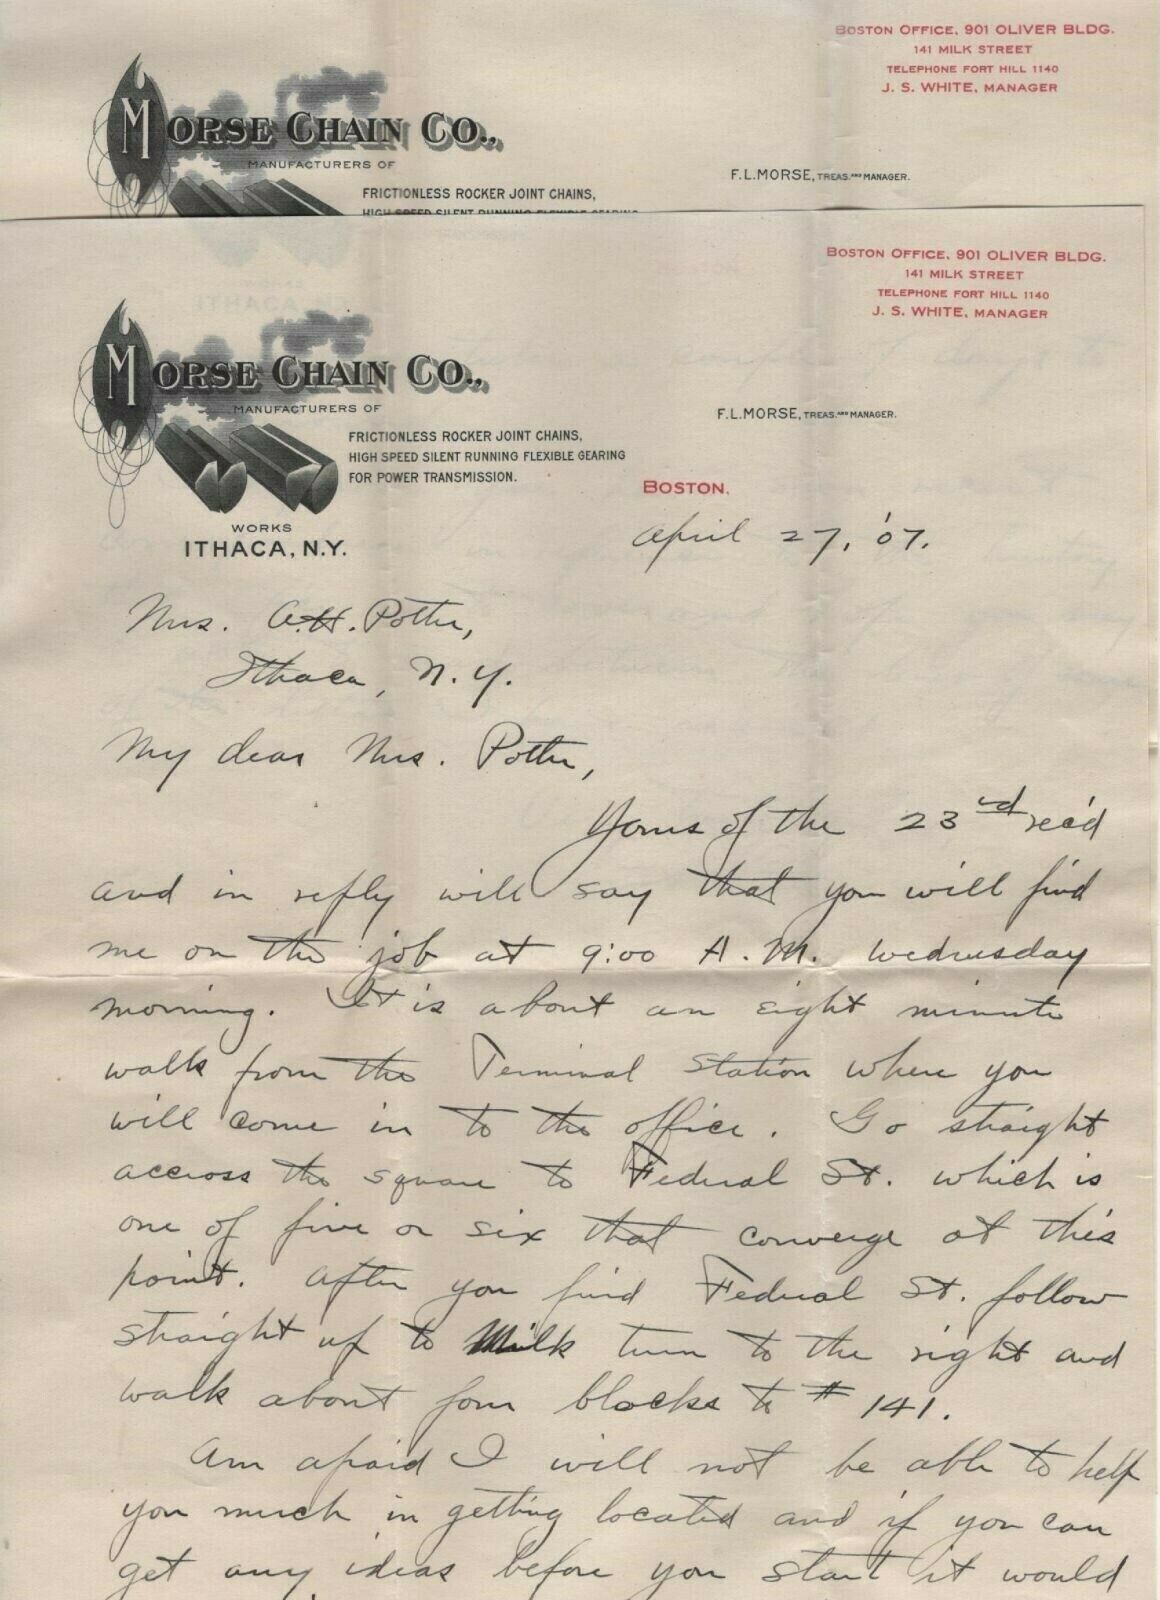 BOSTON OFFICE, 901 OLIVER BLDG.
141 MILK STREET
TELEPHONE FORT HILL 1140
J. S. WHITE, MANAGER
MORSE CHAIN CO.,
MANUFACTURERS OF
FRICTIONLESS ROCKER JOINT CHAINS,
HIGH SPEED SILENT RUNNING FLEXIBLE GEARING
F.L.MORSE, TREAS. AND MANAGER.
BOSTON OFFICE, 901 OLIVER BLDG.
141 MILK STREET
TELEPHONE FORT HILL 1140
J. S. WHITE, MANAGER
MORSE CHAIN CO.,
MANUFACTURERS OF
F.L.MORSE, TREAS. AND MANAGER.
FRICTIONLESS ROCKER JOINT CHAINS,
HIGH SPEED SILENT RUNNING FLEXIBLE GEARING
FOR POWER TRANSMISSION.
WORKS
ITHACA, N.Y.
BOSTON,
April 27, '07.
Mrs. A.H. Potter,
Ithaca, N.Y.
My dear Mrs. Potter,
Yours of the 23rd rec'd
and in reply will say that you will find
me on the job at 9:00 A.M. Wednesday
morning. It is about an eight minute
walk from the Terminal Station where you
will come in to the office. Go straight
accross the square to Federal St. which is
one of five or six that converge at this
point. After you find Federal St. follow
straight up to Milk turn to the right and
walk about four blocks to # 141.
Am afraid I will not be able to help
you much in getting located and if you can
get any ideas before you start it would